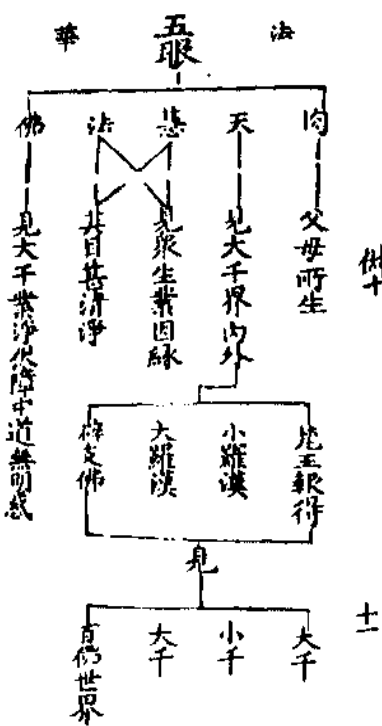 法華
五眼
肉
天
慧
法
佛
父母所生
見大千界内外
見眾生業因緣
其目甚清淨
見大千業淨伏障中道無明惑
王報得
小羅漢
大羅漢
辟支佛
見
大千
小千
大千
百佛世界
十
十一